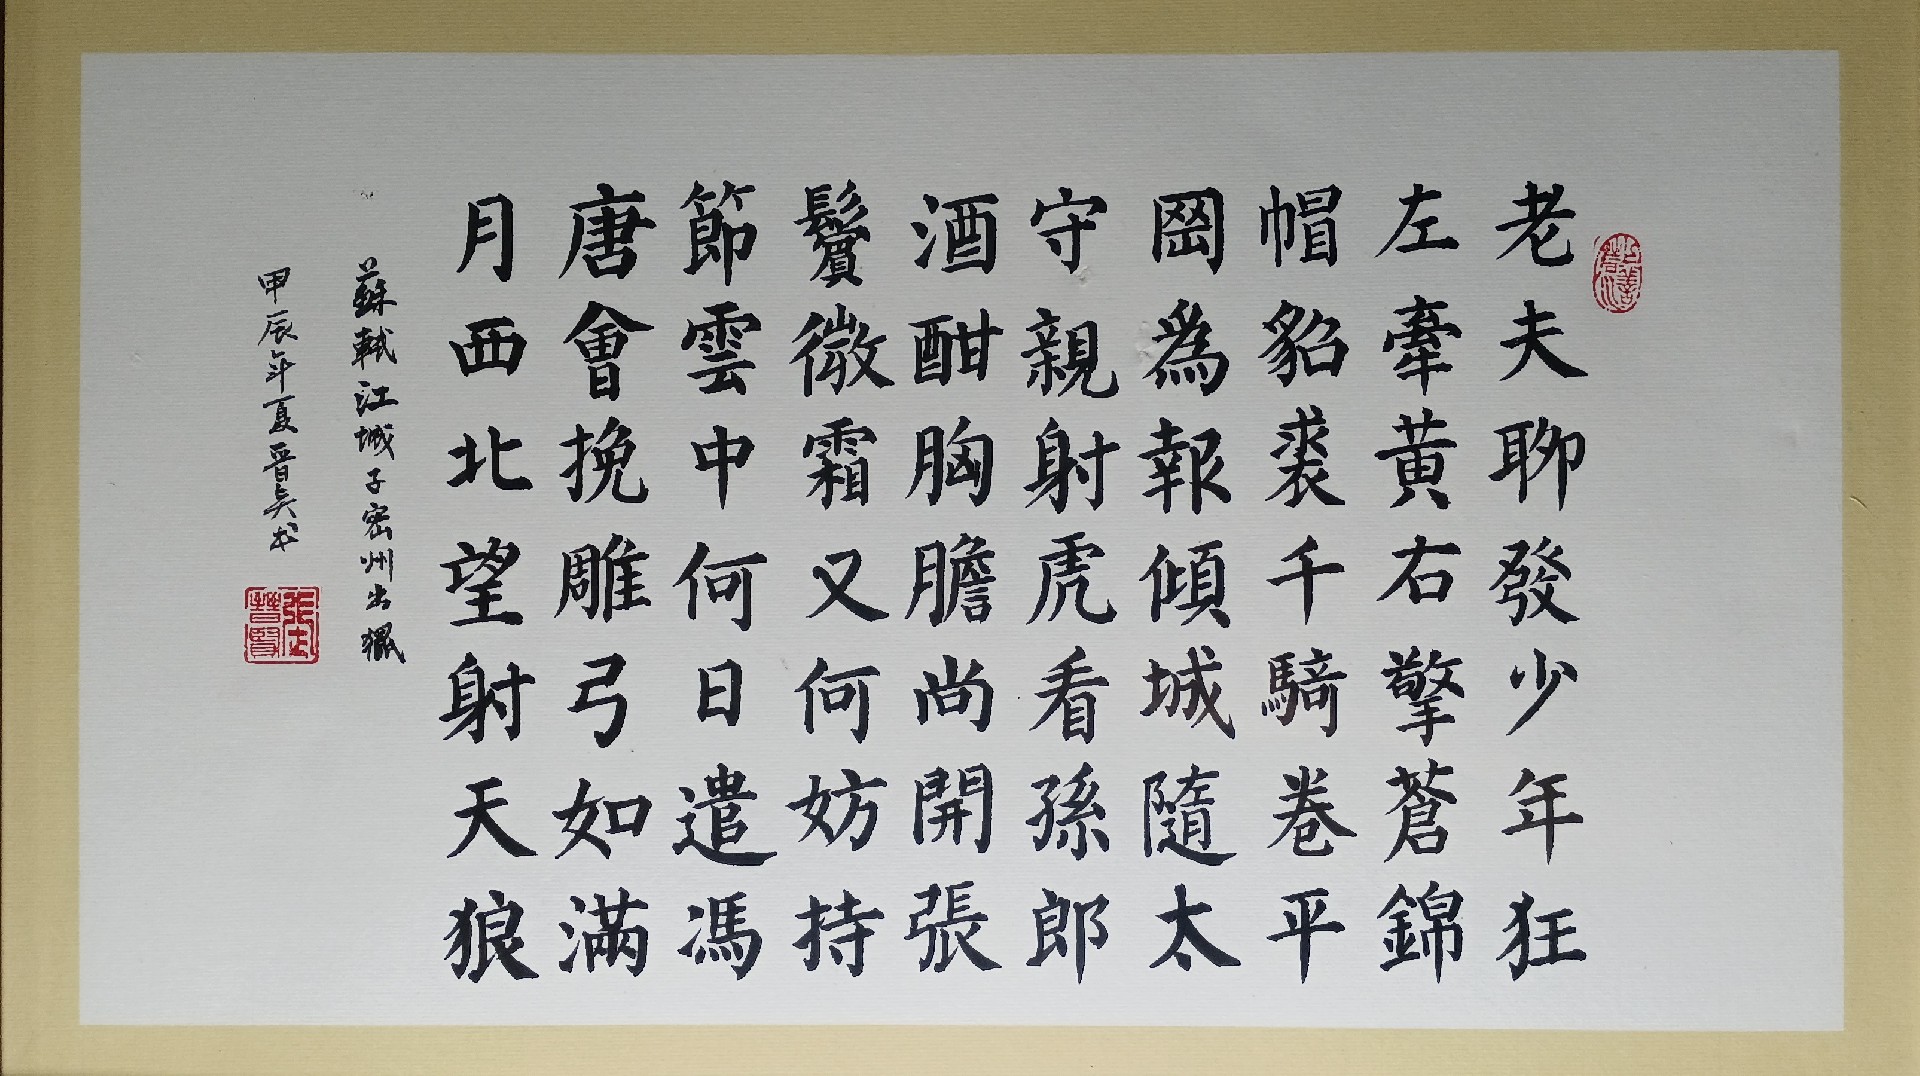 老夫聊發少年狂
左牽黃右擎蒼錦
帽貂裘千騎卷平
岡為報傾城隨太
守親射虎看孫郎
酒酣胸膽尚開張
鬢微霜又何妨持
節雲中何日遣馮
唐會挽雕弓如滿
月西北望射天狼
蘇軾江城子密州出獵
甲辰年夏晉賢書